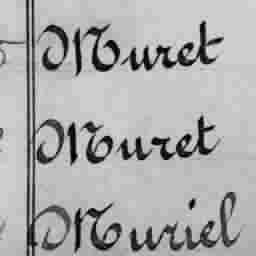 Muret
Muret
Muriel